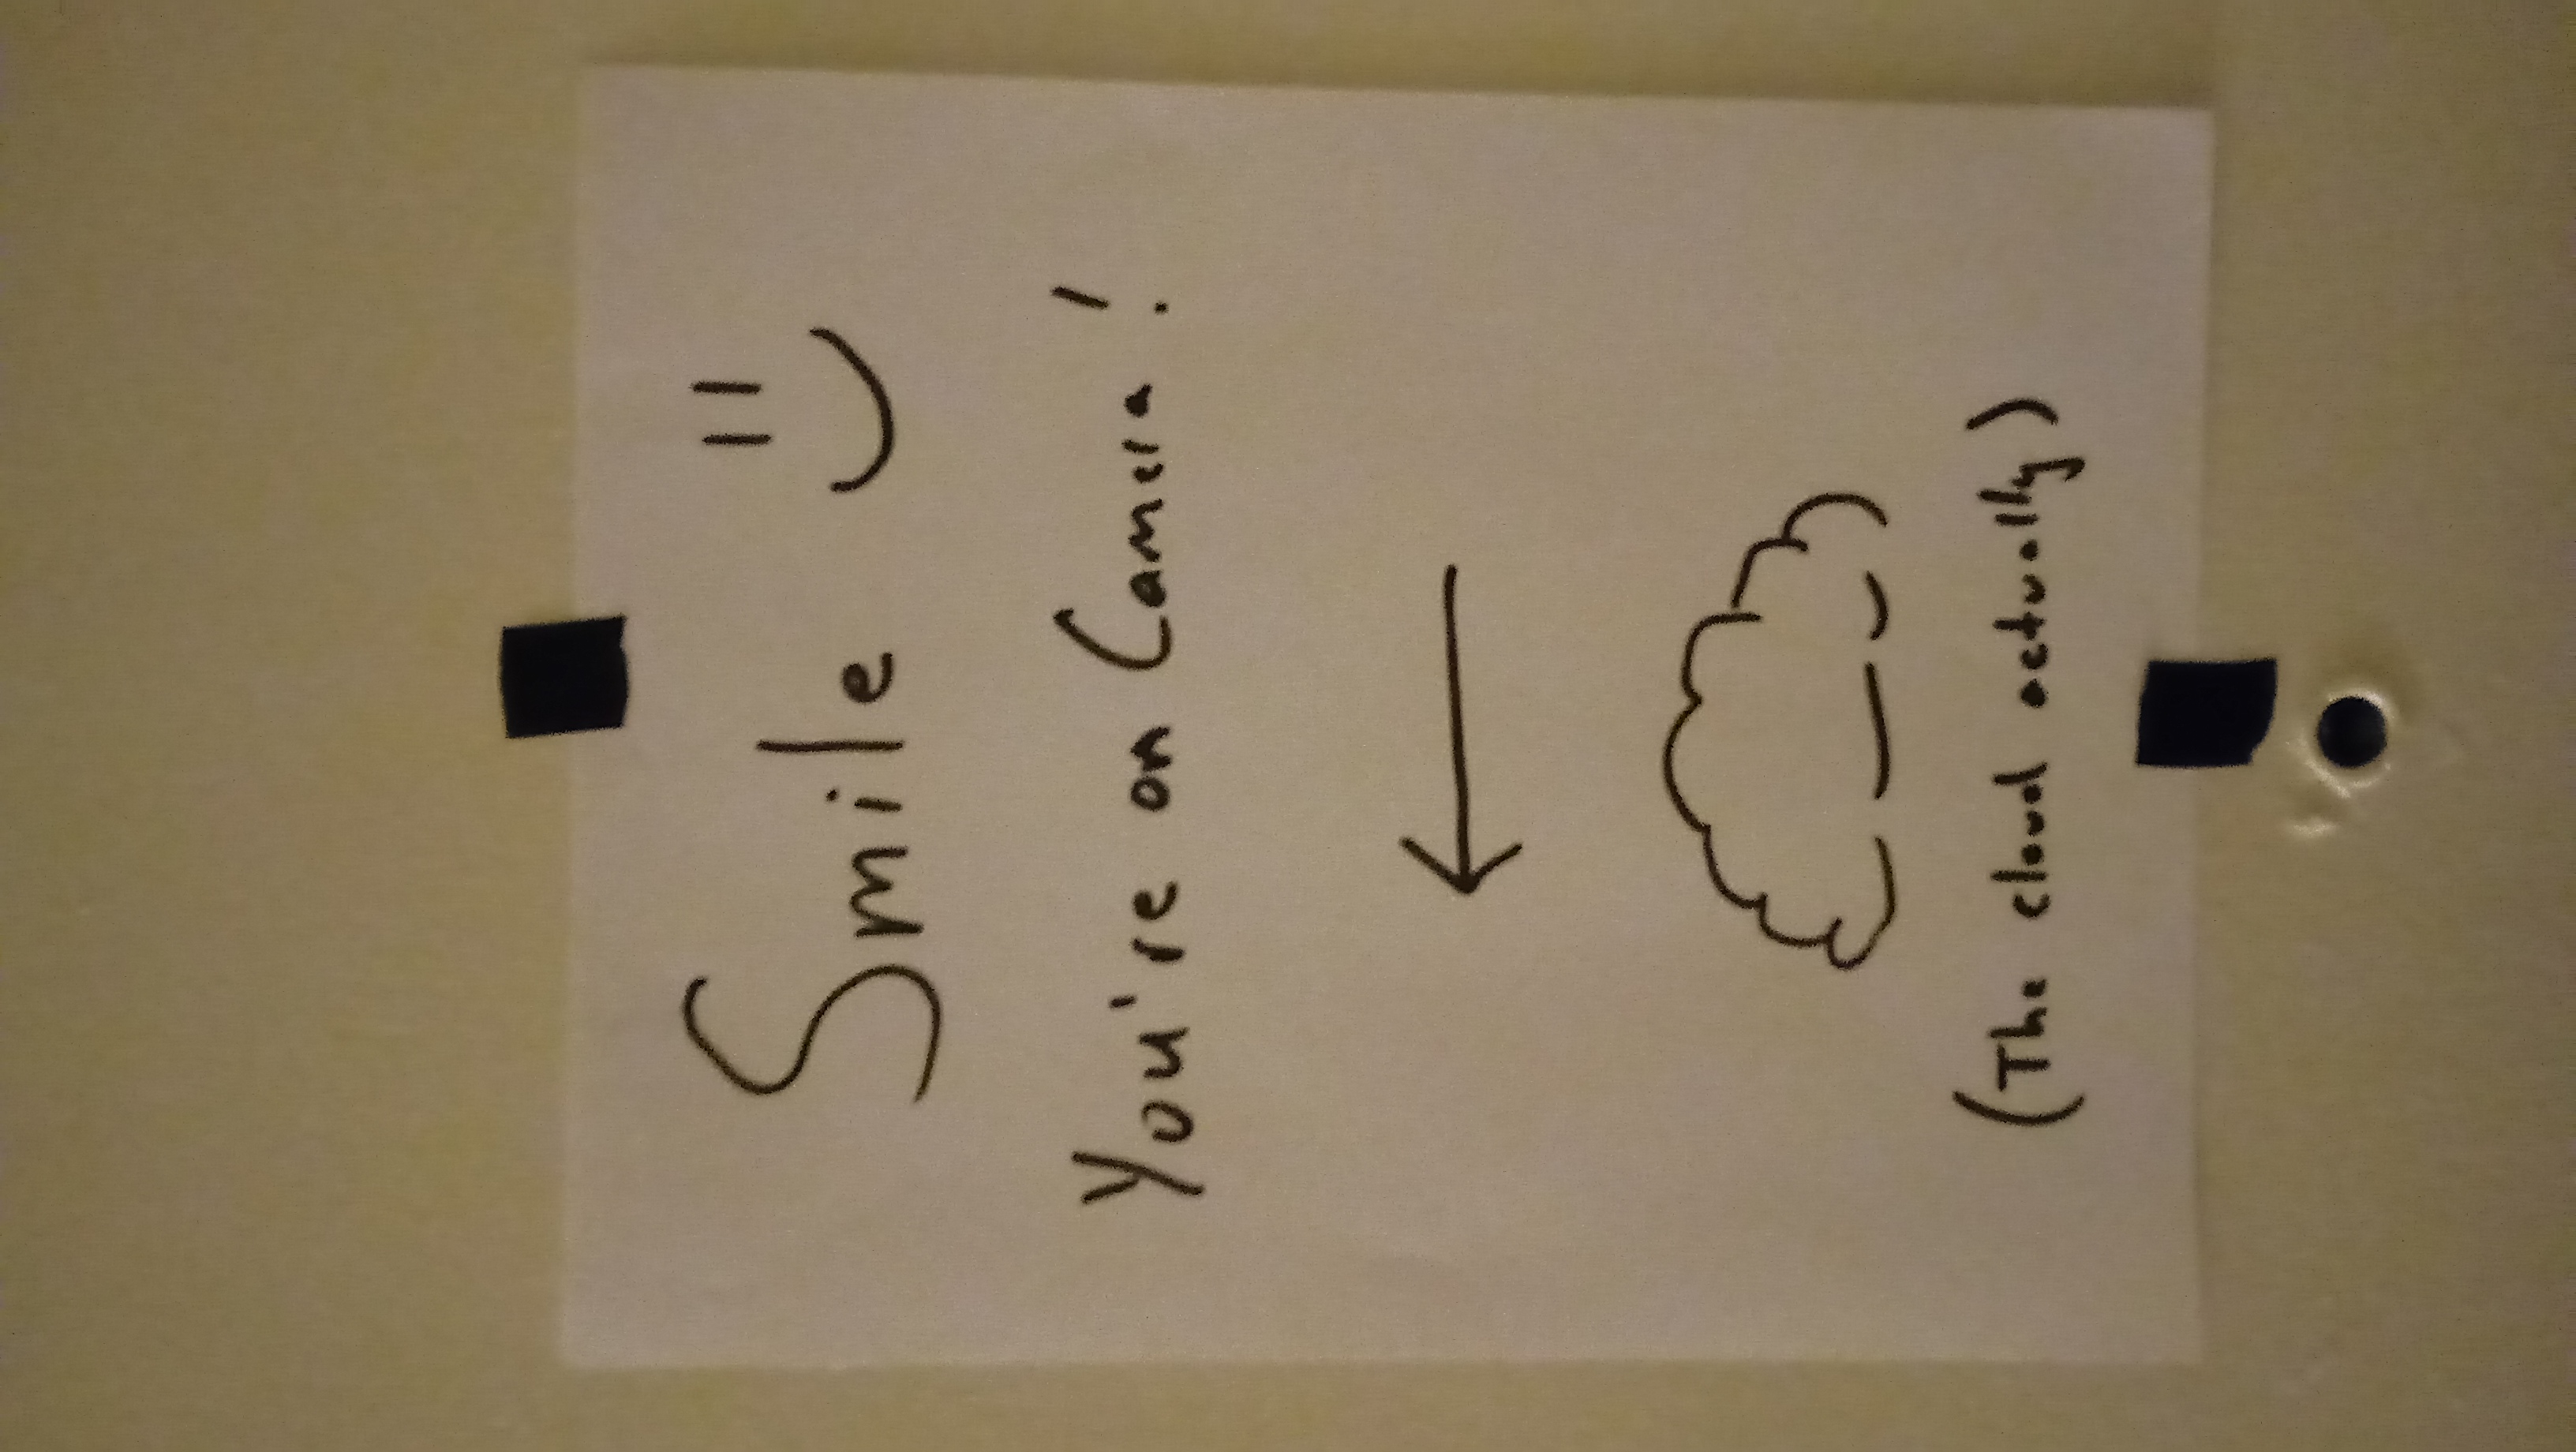 Smile
You're on Camera!
(The cloud actually)